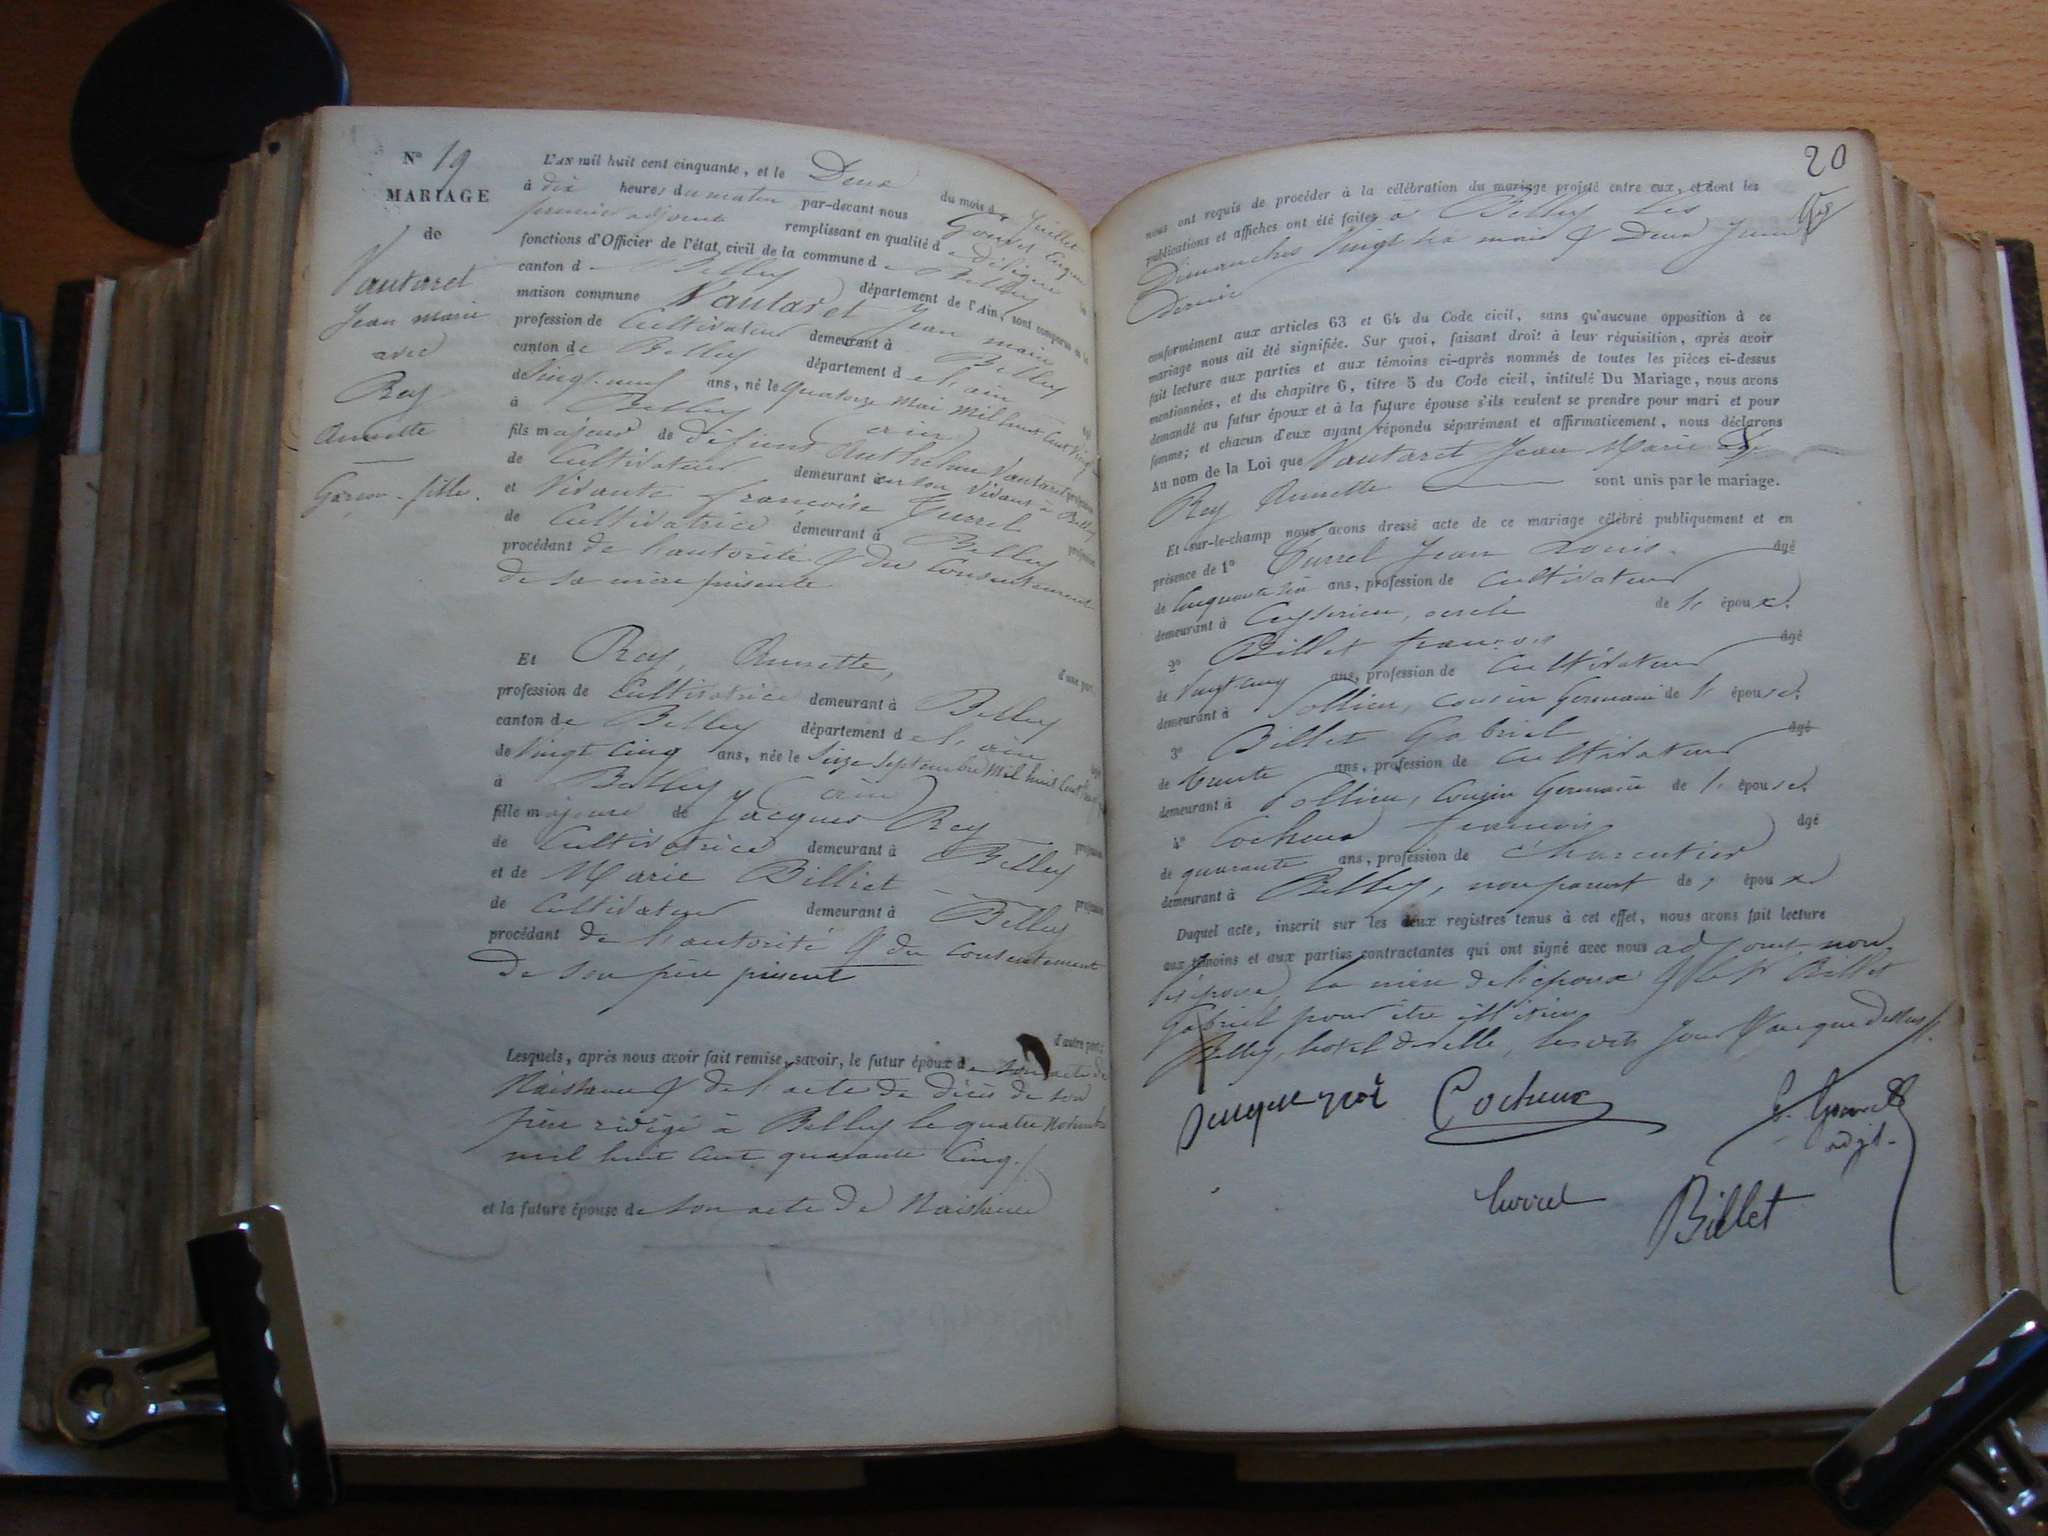 N° 19
MARIAGE
de
Vautaret
Jean marie
avec
Rey
Annette
Garçon - fille.
L'AN mil huit cent cinquante, et le Deux du mois de Juillet
à dix heures du matin par-devant nous
premier adjoint remplissant en qualité de délégué
fonctions d'Officier de l'état civil de la commune de Belley
canton de Belley département de l'Ain, sont comparus en la
maison commune Vautaret Jean marie
profession de Cultivateur demeurant à Belley
canton de Belley département de l'ain
de Vingt-neuf ans, né le quatorze Mai Mil huit Cent Vingt
à Belley (ain)
fils majeur de défunt Anthelme Vautaret profession
de Cultivateur demeurant en son vivant à Belley
et Vivante françoise Turrel profession
de Cultivatrice demeurant à Belley
procédant de l'autorité & du Consentement
de sa mère présente
d'une part,
Et Rey, Annette,
profession de Cultivatrice demeurant à Belley
canton de Belley département de l'ain
de Vingt Cinq ans, née le Seize Septembre Mil huit Cent
à Belley (ain)
fille majeure de Jacques Rey profession
de Cultivatrice demeurant à Belley
et de Marie Billiet profession
de Cultivateur demeurant à Belley
procédant de l'autorité & du Consentement
de son père présent
d'autre part;
Lesquels, après nous avoir fait remise, savoir, le futur époux de son acte de
Naissance & de l'acte de Décès de son
père rédigé à Belley le quatre Novembre
mil huit cent quarante Cinq./
et la future épouse de son acte de Naissance
20
nous ont requis de procéder à la célébration du mariage projeté entre eux, et dont les
publications et affiches ont été faites à Belley les
Dimanches Vingt six mai & Deux Juin
Dernier
conformément aux articles 63 et 64 du Code civil, sans qu'aucune opposition à ce
mariage nous ait été signifiée. Sur quoi, faisant droit à leur réquisition, après avoir
fait lecture aux parties et aux témoins ci-après nommés de toutes les pièces ci-dessus
mentionnées, et du chapitre 6, titre 5 du Code civil, intitulé Du Mariage, nous avons
demandé au futur époux et à la future épouse s'ils veulent se prendre pour mari et pour
femme; et chacun d'eux ayant répondu séparément et affirmativement, nous déclarons
Au nom de la Loi que Vautaret Jean Marie &
Rey Annette sont unis par le mariage.
Et sur-le-champ nous avons dressé acte de ce mariage célébré publiquement et en
présence de 1° Turrel Jean Louis. âgé
de Cinquante six ans, profession de Cultivateur
demeurant à Ceyserieu, oncle de l'époux.
2° Billet françois âgé
de Vingt cinq ans, profession de Cultivateur
demeurant à Pollieu, cousin Germain de l'épouse.
3° Billet Gabriel âgé
de trente ans, profession de Cultivateur
demeurant à Pollieu, Cousin Germain de l'épouse.
4° Cocheux françois âgé
de quarante ans, profession de Charcutier
demeurant à Belley, non parent de, époux
Duquel acte, inscrit sur les deux registres tenus à cet effet, nous avons fait lecture
aux témoins et aux parties contractantes qui ont signé avec nous adjoint non
les époux, la mère de l'époux & le Sr Billet
Gabriel pour être illitérés
Belley, hotel de ville, les dits Jour & an que dessus /.
Cocheux
adjt.
turrel
Billet